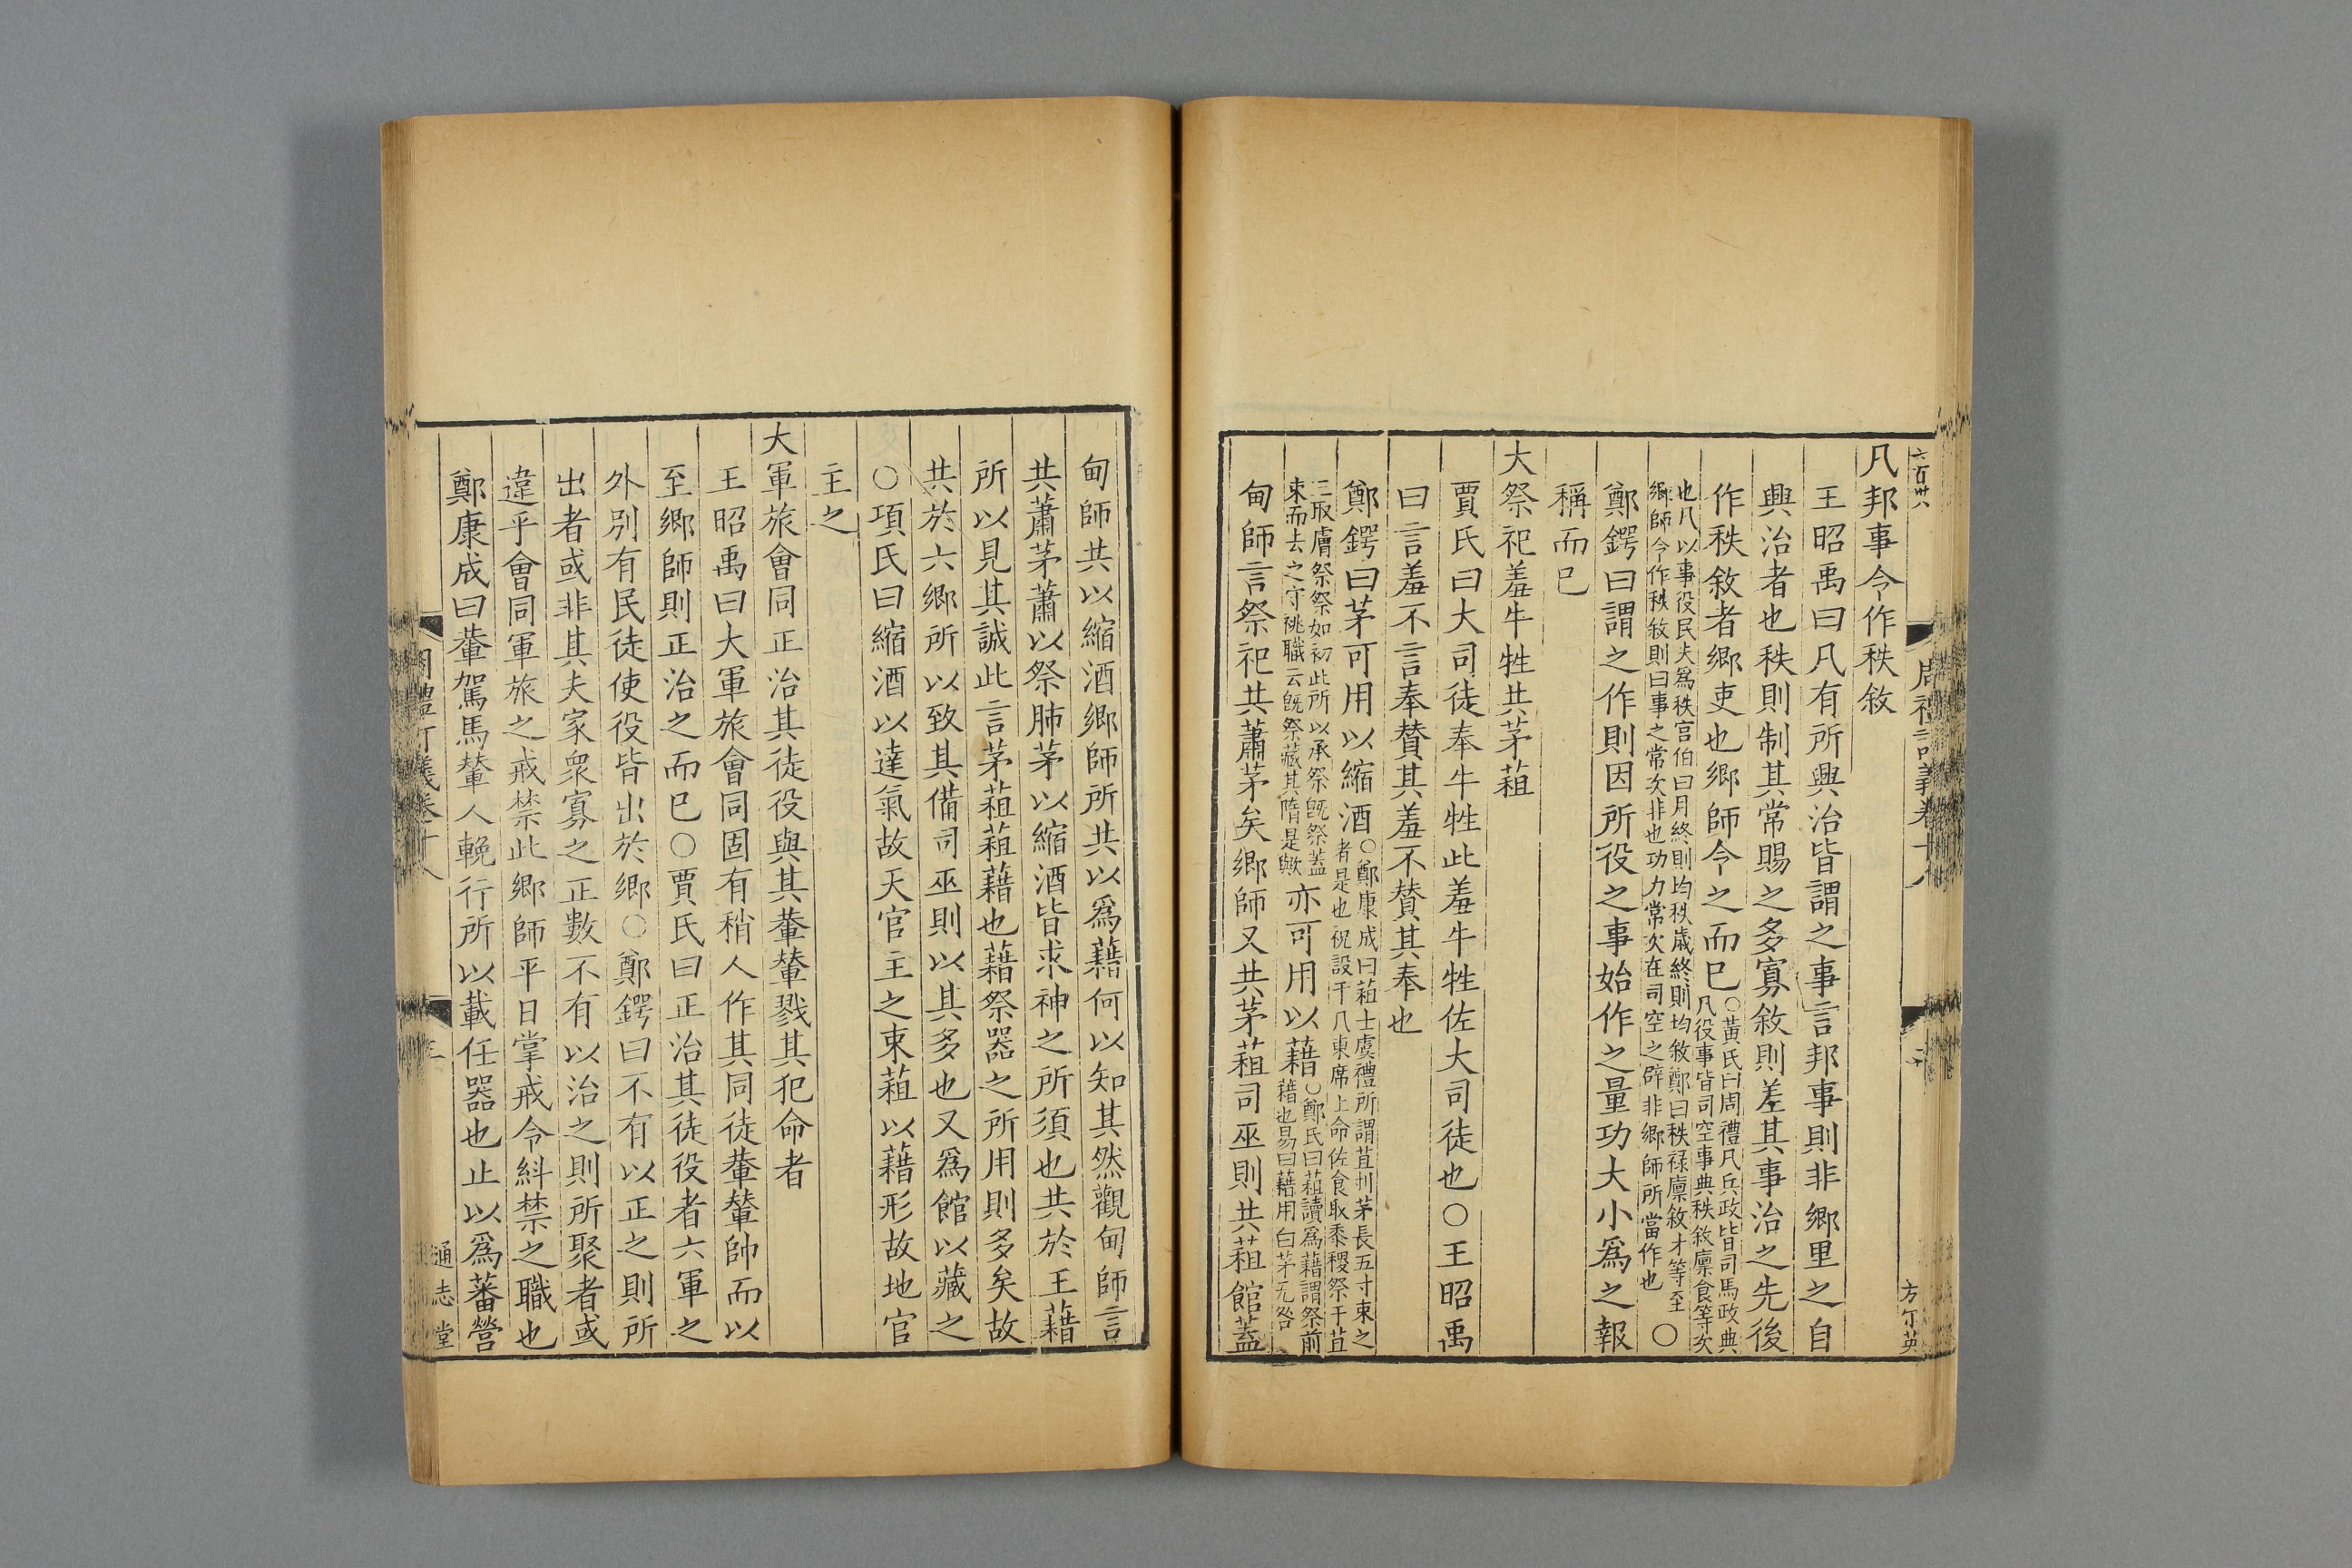 六百卅六
凡邦事令作秩敘
王昭禹曰凡有所興治皆謂之事言邦事則非鄉里之自
興治者也秩則制其常賜之多寡敘則差其事治之先後
作秩敘者鄉吏也鄉師令之而已○黃氏曰周禮凡兵政皆司馬政典
凡役事皆司空事典秩敘廪食等次
也凡以事役民夫爲秩官伯曰月終則均秩歲終則均敘鄭曰秩祿廪敘才等至
鄉師令作秩敘則曰事之常次非也功力常次在司空之辟非鄉師所當作也○
鄭鍔曰謂之作則因所役之事始作之量功大小爲之報
稱而已
大祭祀羞牛牲共茅蒩
賈氏曰大司徒奉牛牲此羞牛牲佐大司徒也○王昭禹
曰言羞不言奉賛其羞不賛其奉也
鄭鍔曰茅可用以縮酒○鄭康成曰蒩士虞禮所謂苴刌茅長五寸束之
者是也祝設于几東席上命佐食取黍稷祭于苴
三取膚祭祭如初此所以承祭旣祭蓋
束而去之守祧職云旣祭藏其隋是歟
亦可用以藉○鄭氏曰蒩讀爲藉謂祭前
藉也易曰藉用白茅无咎
甸師言祭祀共蕭茅矣鄉師又共茅蒩司巫則共蒩館蓋
方尓英
甸師共以縮酒鄉師所共以爲藉何以知其然觀甸師言
共蕭茅蕭以祭肺茅以縮酒皆求神之所須也共於王藉
所以見其誠此言茅蒩蒩藉也藉祭器之所用則多矣故
共於六鄉所以致其備司巫則以其多也又爲館以藏之
○項氏曰縮酒以達氣故天官主之束蒩以藉形故地官
主之
大軍旅會同正治其徒役與其輂輦戮其犯命者
王昭禹曰大軍旅會同固有稍人作其同徒輂輦帥而以
至鄉師則正治之而已○賈氏曰正治其徒役者六軍之
外別有民徒使役皆出於鄉○鄭鍔曰不有以正之則所
出者或非其夫家衆寡之正數不有以治之則所聚者或
違乎會同軍旅之戒禁此鄉師平日掌戒令糾禁之職也
鄭康成曰輂駕馬輦人輓行所以載任器也止以爲蕃營
通志堂